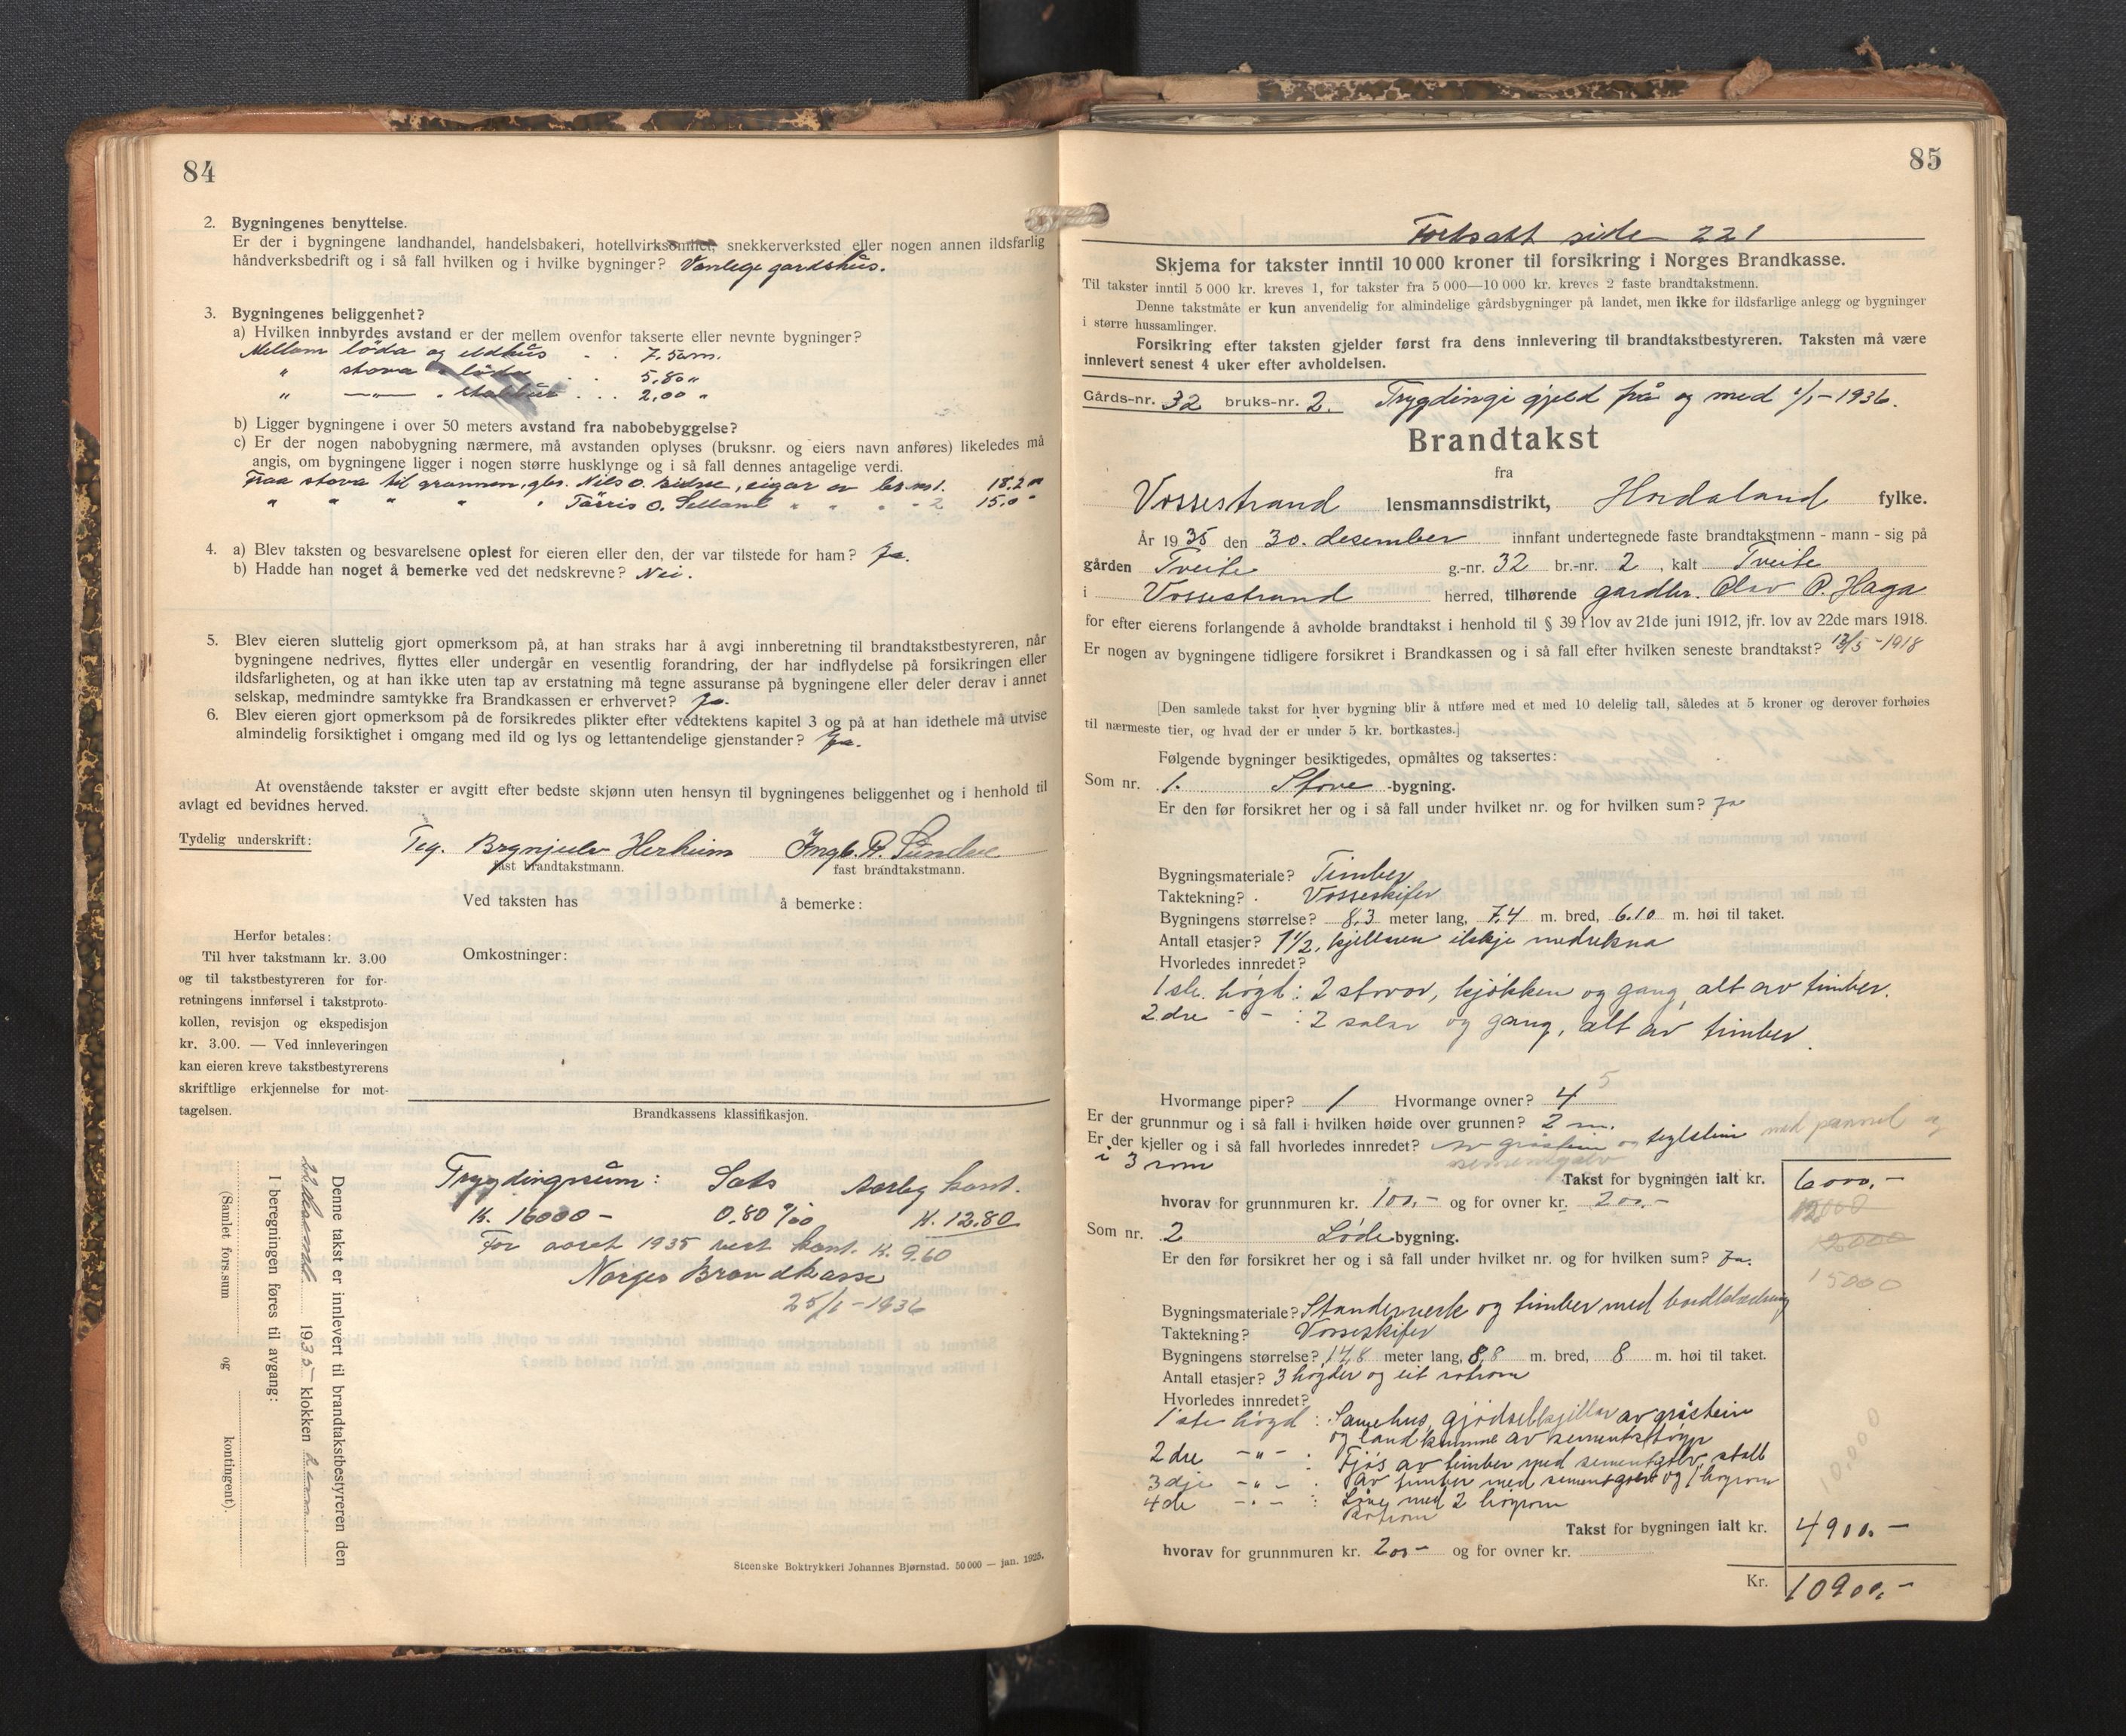 84
2. Bygningenes benyttelse.
Er der i bygningene landhandel, handelsbakeri, hotellvirksomhet, snekkerverksted eller nogen annen ildsfarlig
håndverksbedrift og i så fall hvilken og i hvilke bygninger? Vanlege gardshus.
3. Bygningenes beliggenhet?
a) Hvilken innbyrdes avstand er der mellem ovenfor takserte eller nevnte bygninger?
Mellom löda og eldhus - . 7.50 m.
" stova " löda . . 5,80 "
" —"— " stabbur . . . 2,00 "
b) Ligger bygningene i over 50 meters avstand fra nabobebyggelse?
c) Er der nogen nabobygning nærmere, må avstanden oplyses (bruksnr. og eiers navn anføres) likeledes må
angis, om bygningene ligger i nogen større husklynge og i så fall dennes antagelige verdi.
Fraa stova til grannen, gbr. Nils O. , eigar av br.nr. 1. 18.2 "
" " " " " O. " " " - 2 15,0 "
4. a) Blev taksten og besvarelsene oplest for eieren eller den, der var tilstede for ham? Ja.
b) Hadde han noget å bemerke ved det nedskrevne? Nei.
5. Blev eieren sluttelig gjort opmerksom på, at han straks har å avgi innberetning til brandtakstbestyreren, når
bygningene nedrives, flyttes eller undergår en vesentlig forandring, der har indflydelse på forsikringen eller
ildsfarligheten, og at han ikke uten tap av erstatning må tegne assuranse på bygningene eller deler derav i annet
selskap, medmindre samtykke fra Brandkassen er erhvervet? Ja.
6. Blev eieren gjort opmerksom på de forsikredes plikter efter vedtektens kapitel 3 og på at han idethele må utvise
almindelig forsiktighet i omgang med ild og lys og lettantendelige gjenstander? Ja.
At ovenstående takster er avgitt efter bedste skjønn uten hensyn til bygningenes beliggenhet og i henhold til
avlagt ed bevidnes herved.
Tydelig underskrift: Teg. Brynjulv Herheim Ingb. P. Sundve
fast brandtakstmann. fast brandtakstmann.
Ved taksten has å bemerke:
Herfor betales:
Til hver takstmann kr. 3.00
og til takstbestyreren for for-
retningens innførsel i takstproto-
kollen, revisjon og ekspedisjon
kr. 3.00. — Ved innleveringen
kan eieren kreve takstbestyrerens
skriftlige erkjennelse for mot-
tagelsen.
Omkostninger:
Brandkassens klassifikasjon.
Trygdingssum: Sats Aarleg kont.
Kr. 16000 - 0.80 ‰ Kr. 12.80
For aaret 1935 vert kont. kr. 9.60
Norges Brandkasse
25/1 - 1936
Denne takst er innlevert til brandtakstbestyreren den
1935 klokken
I beregningen føres til avgang:
(Samlet fors.sum og kontingent).
Steenske Boktrykkeri Johannes Bjørnstad. 50 000 — jan. 1925.
85
Fortsatt side 221
Skjema for takster inntil 10 000 kroner til forsikring i Norges Brandkasse.
Til takster inntil 5 000 kr. kreves 1, for takster fra 5 000—10 000 kr. kreves 2 faste brandtakstmenn.
Denne takstmåte er kun anvendelig for almindelige gårdsbygninger på landet, men ikke for ildsfarlige anlegg og bygninger
i større hussamlinger.
Forsikring efter taksten gjelder først fra dens innlevering til brandtakstbestyreren. Taksten må være
innlevert senest 4 uker efter avholdelsen.
Gårds-nr. 32 bruks-nr. 2. Trygdingi gjeld frå og med 1/1 - 1936.
Brandtakst
fra
Vossestrand lensmannsdistrikt, Hordaland fylke.
År 1935 den 30. desember innfant undertegnede faste brandtakstmenn - mann - sig på
gården Tveite g.-nr. 32 br.-nr. 2, kalt Tveite
i Vossestrand herred, tilhørende gardbr. Olav P. Haga
for efter eierens forlangende å avholde brandtakst i henhold til § 39 i lov av 21de juni 1912, jfr. lov av 22de mars 1918.
Er nogen av bygningene tidligere forsikret i Brandkassen og i så fall efter hvilken seneste brandtakst? 13/5 - 1918
[Den samlede takst for hver bygning blir å utføre med et med 10 delelig tall, således at 5 kroner og derover forhøies
til nærmeste tier, og hvad der er under 5 kr. bortkastes.]
Følgende bygninger besiktigedes, opmåltes og taksertes:
Som nr. 1. Stove -bygning.
Er den før forsikret her og i så fall under hvilket nr. og for hvilken sum? Ja
Bygningsmateriale? Timber
Taktekning? Vosseskifer
Bygningens størrelse? 8,3 meter lang, 7,4 m. bred, 6.10 m. høi til taket.
Antall etasjer? 1 1/2, kjellaren ikkje medrekna
Hvorledes innredet?
1ste høgd: 2 stovor, kjøkken og gang, alt av timber.
2dre - " - : 2 salar og gang, alt av timber.
Hvormange piper? 1 Hvormange ovner? 4 5
Er der grunnmur og i så fall i hvilken høide over grunnen? 2 m.
Er der kjeller og i så fall hvorledes innredet? av gråstein og teglstein med pannel og
i 3 rom sementgolv
Takst for bygningen ialt kr. 6000,-
hvorav for grunnmuren kr. 100,- og for ovner kr. 200,-
12000
15000
Som nr. 2 Løde bygning.
Er den før forsikret her og i så fall under hvilket nr. og for hvilken sum? Ja.
Bygningsmateriale? Standerverk og timber med bordklædning
Taktekning? Vosseskifer
Bygningens størrelse? 14,8 meter lang, 8,8 m. bred, 8 m. høi til taket.
Antall etasjer? 3 høgder og eit rotrom
Hvorledes innredet?
1ste høgd : Sauehus, gjødselkjellar av gråstein
og landkumme av sementstøyp
2dre - " - : Fjøs av timber med sementgolv, stall
3dje - " - : av timber med sementgolv og 1 høyrom
4de - " - : Løe med 2 høyrom
Rotrom
10,000
Takst for bygningen ialt kr. 4900.-
hvorav for grunnmuren kr. 200- og for ovner kr.
Kr. 10900,-